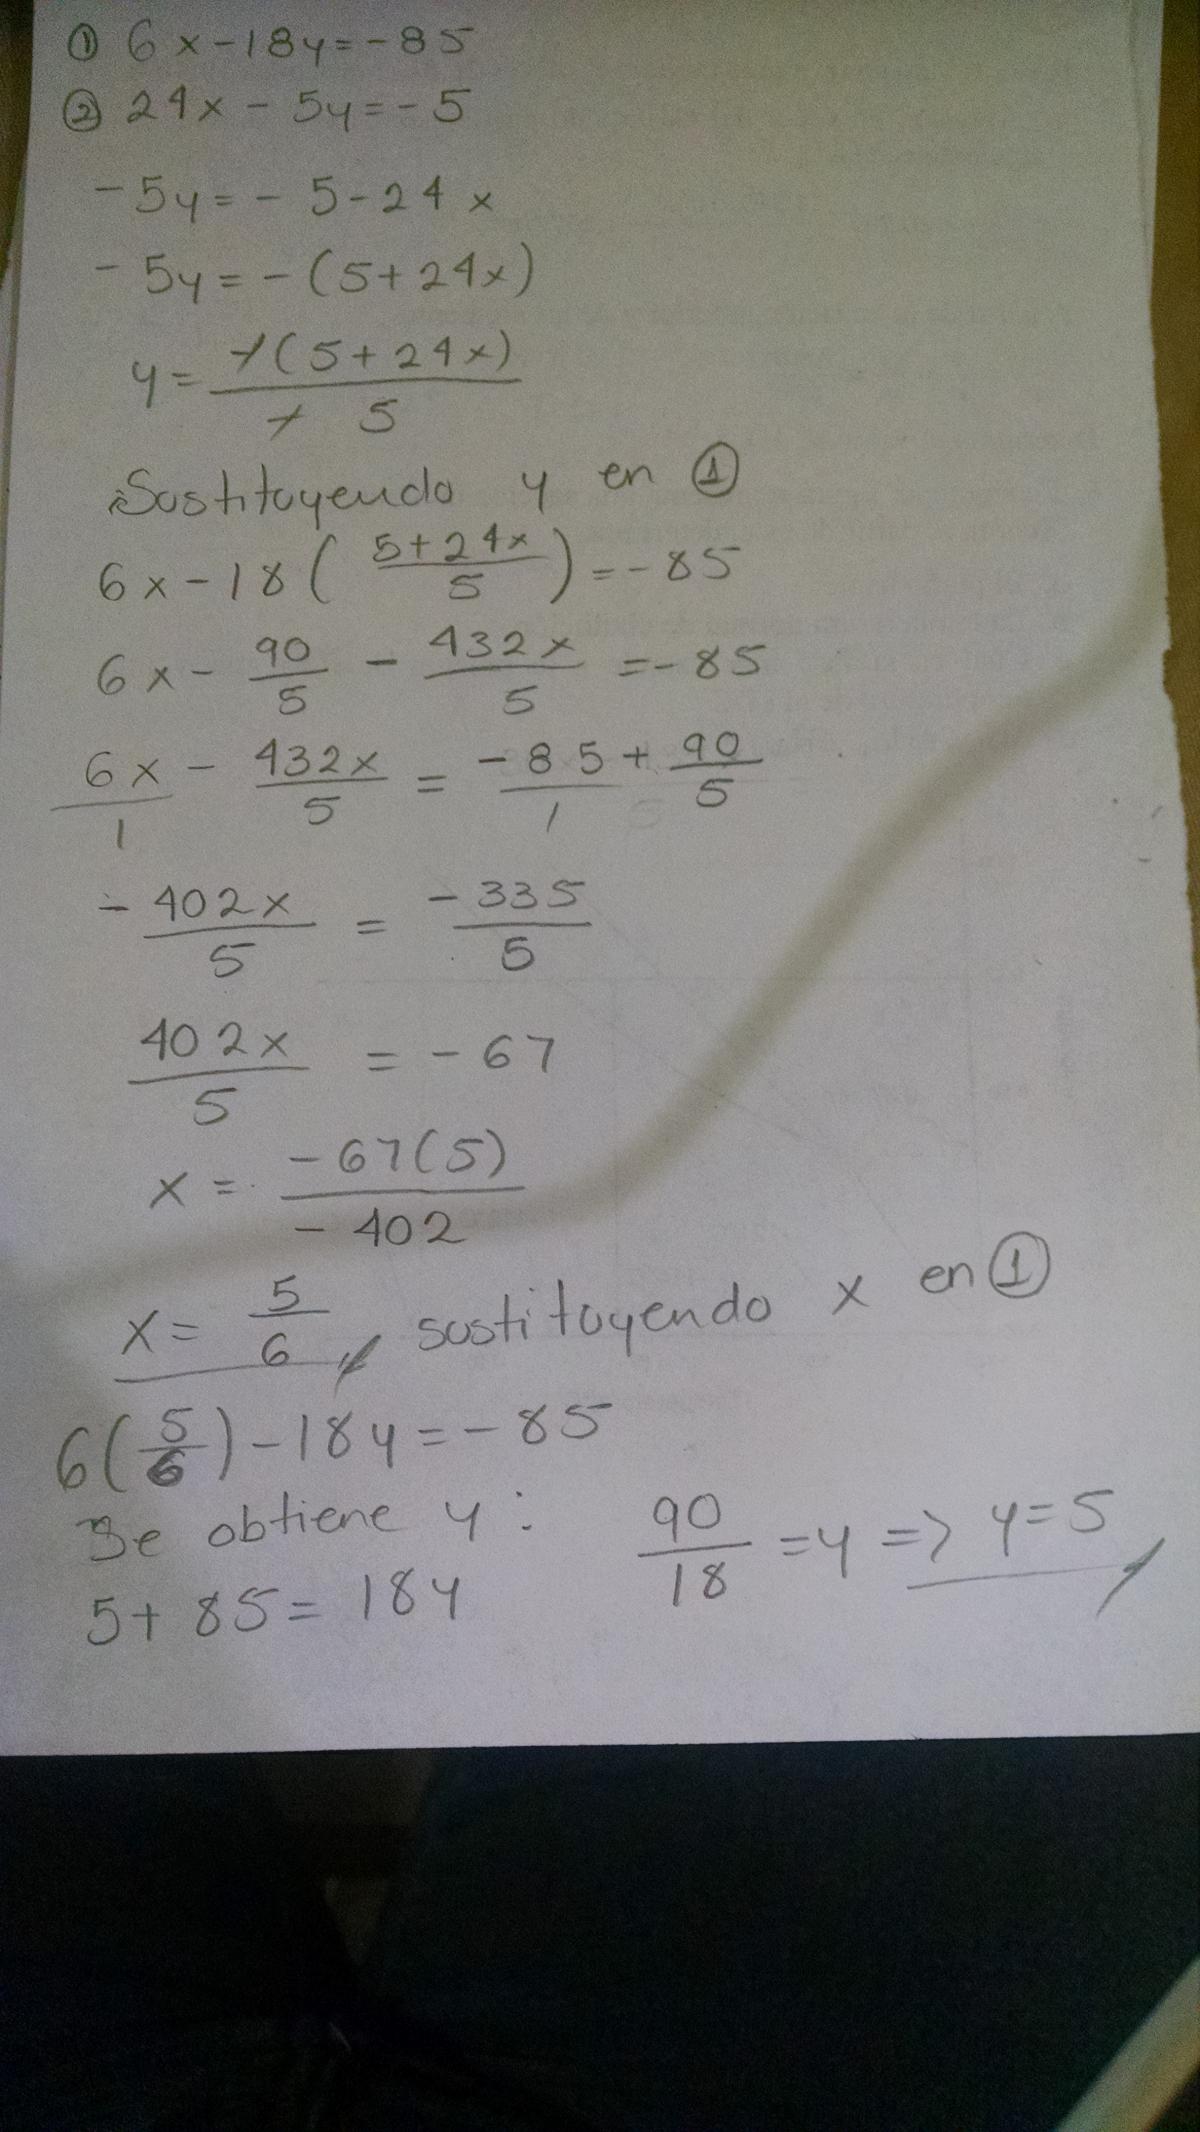 ① 6x-18y=-85
② 24x-5y=-5
-5y=-5-24x
-5y=-(5+24x)
y=-(5+24x)/-5
Sustituyendo y en ①
6x-18(5+24x/5)=-85
6x-90/5-432x/5=-85
6x/1-432x/5=-85/1+90/5
-402x/5=-335/5
402x/5=-67
x=-67(5)/-402
x=5/6, sustituyendo x en ①
6(5/6)-18y=-85
Se obtiene y:
5+85=18y
90/18=y=>y=5